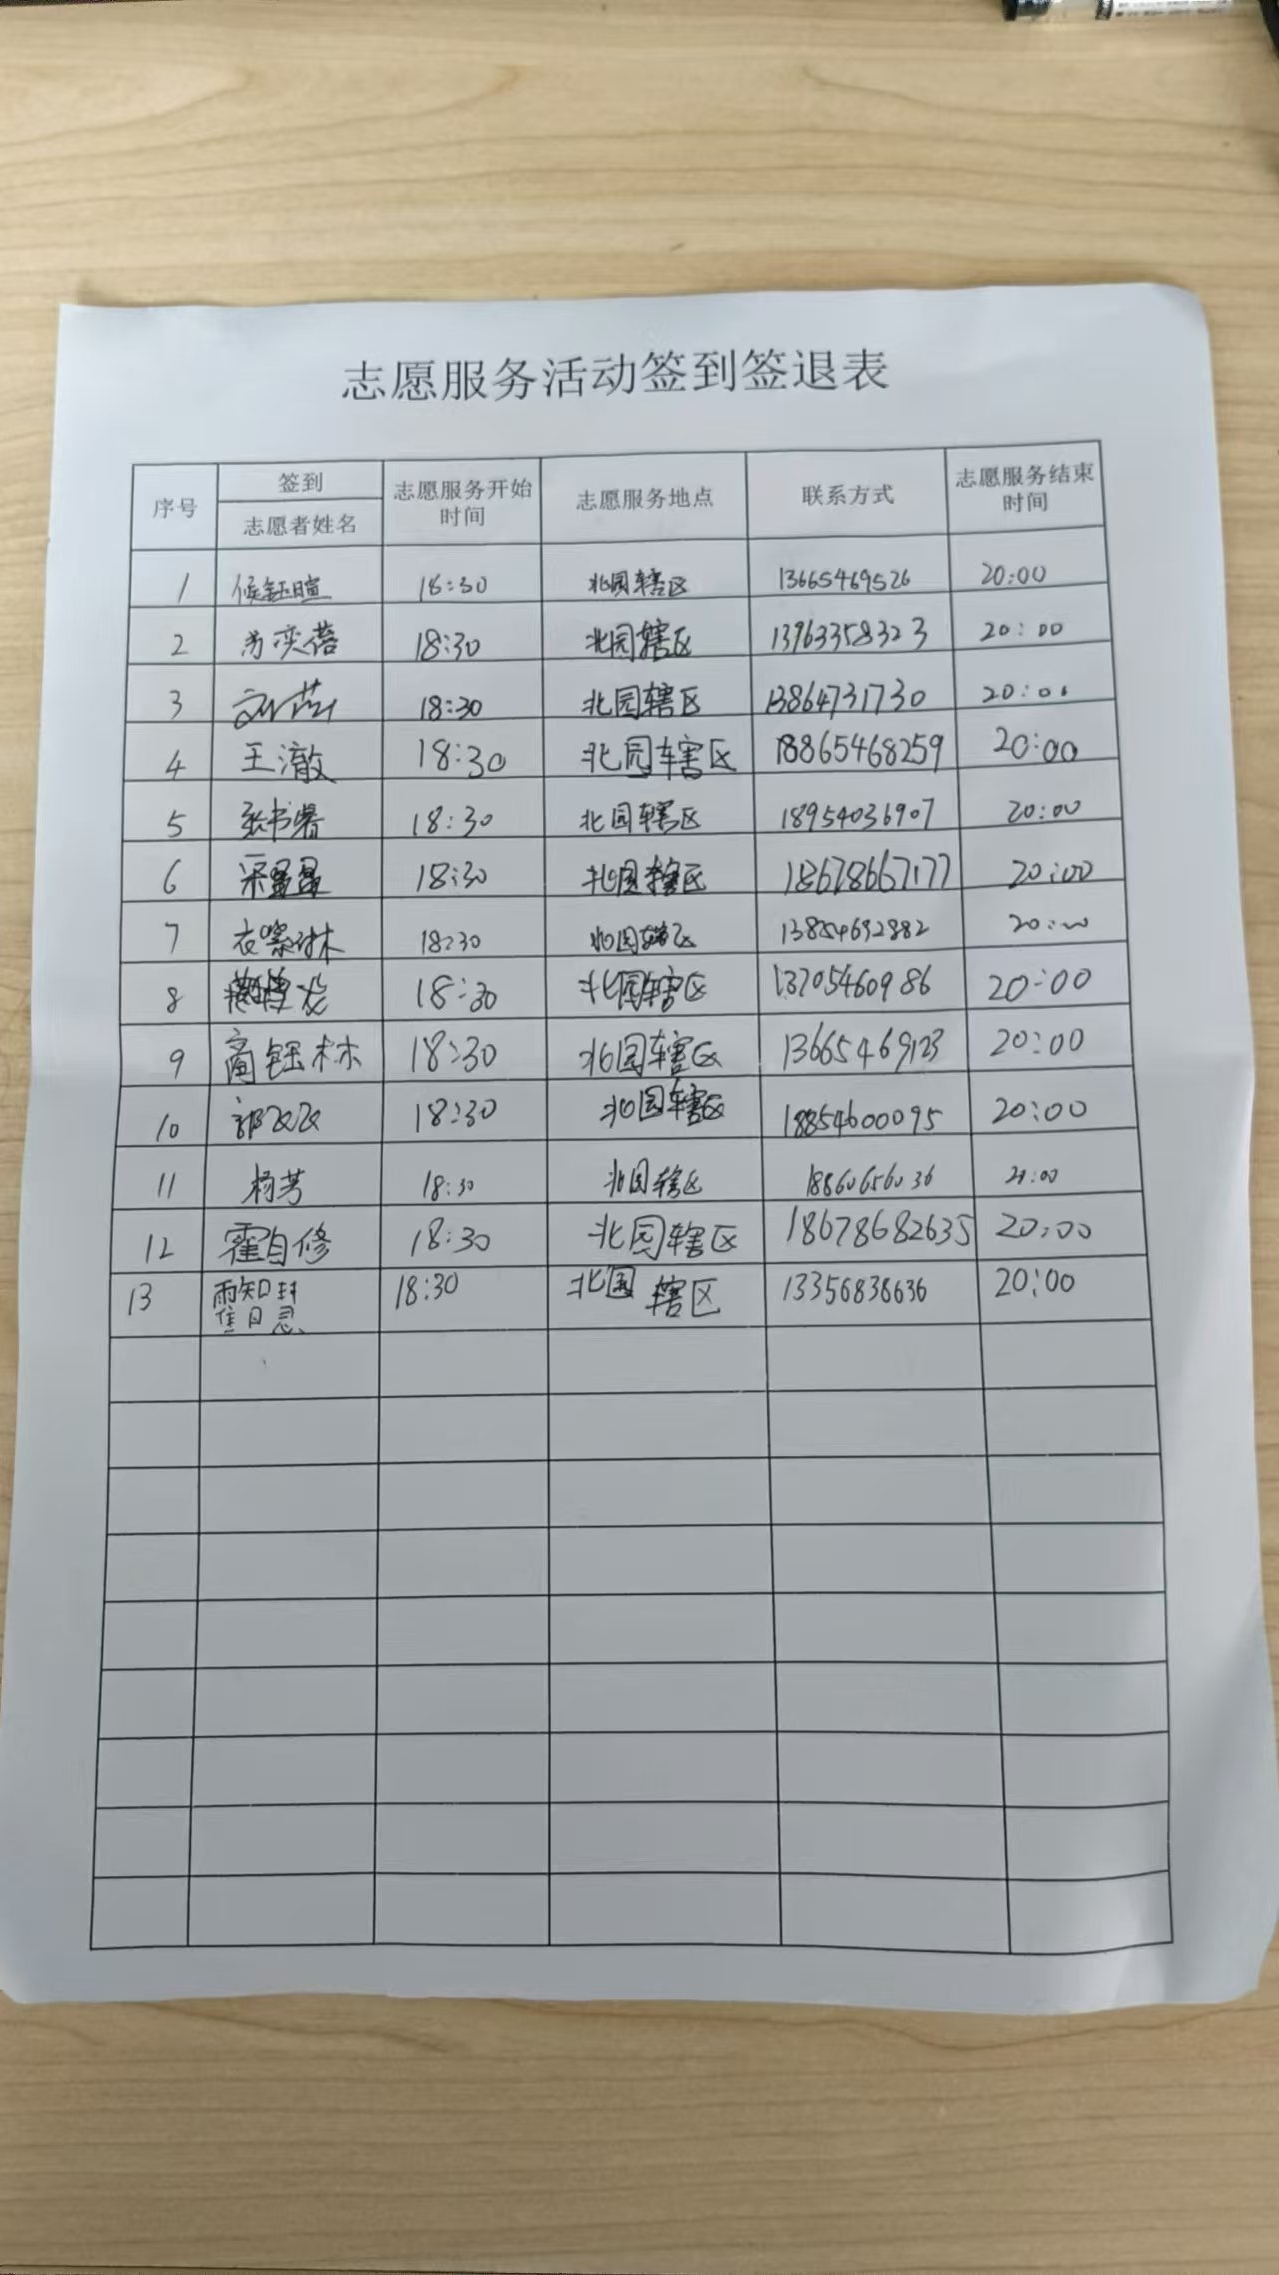 志愿服务活动签到签退表
序号 签到 志愿者姓名 志愿服务开始时间 志愿服务地点 联系方式 志愿服务结束时间
1 侯钰暄 18:30 北园辖区 13665469526 20:00
2 18:30 北园辖区 13963358323 20:00
3 18:30 北园辖区 13864731730 20:00
4 王澈 18:30 北园辖区 18865468259 20:00
5 张书睿 18:30 北园辖区 18954036907 20:00
6 18:30 北园辖区 18678667177 20:00
7 18:30 北园辖区 13854692882 20:00
8 18:30 北园辖区 13705460986 20:00
9 蔺钰林 18:30 北园辖区 13665469123 20:00
10 郭文文 18:30 北园辖区 18854600095 20:00
11 杨芳 18:30 北园辖区 18860656036 20:00
12 霍自修 18:30 北园辖区 18678682635 20:00
13 18:30 北园辖区 13356838636 20:00